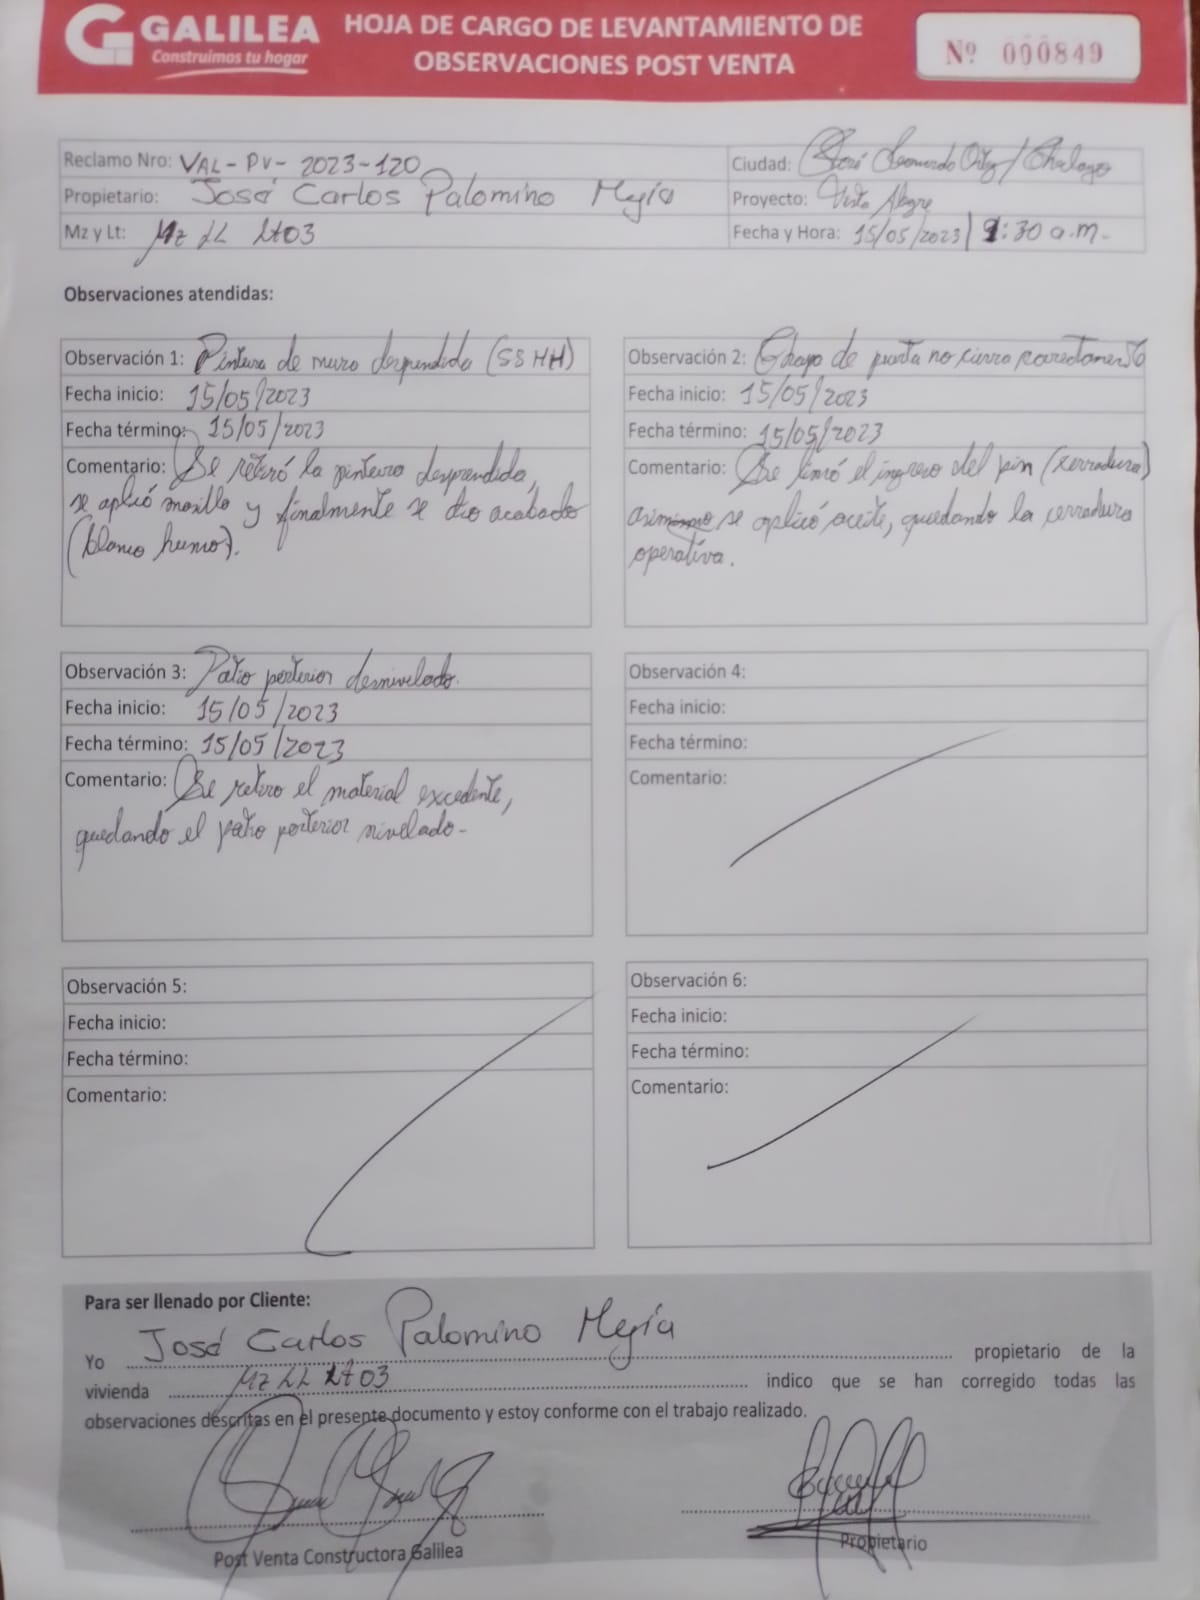 GALILEA
Construimos tu hogar
HOJA DE CARGO DE LEVANTAMIENTO DE
OBSERVACIONES POST VENTA
Nº 000849
Reclamo Nro: VAL-PV-2023-120
Ciudad: José Leonardo Ortiz / Chiclayo
Propietario: José Carlos Palomino Mejía
Proyecto: Vista Alegre
Mz y Lt: Mz LL Lt03
Fecha y Hora: 15/05/2023 | 9:30 a.m.
Observaciones atendidas:
Observación 1: Pintura de muro desprendida (SSHH)
Fecha inicio: 15/05/2023
Fecha término: 15/05/2023
Comentario: Se retiró la pintura desprendida,
se aplicó masilla y finalmente se dio acabado
(blanco humo).
Observación 2: Chapa de puerta no cierra correctamente
Fecha inicio: 15/05/2023
Fecha término: 15/05/2023
Comentario: Se limó el ingreso del pin (cerradura)
asimismo se aplicó aceite, quedando la cerradura
operativa.
Observación 3: Patio posterior desnivelado.
Fecha inicio: 15/05/2023
Fecha término: 15/05/2023
Comentario: Se retiro el material excedente,
quedando el patio posterior nivelado-
Observación 4:
Fecha inicio:
Fecha término:
Comentario:
Observación 5:
Fecha inicio:
Fecha término:
Comentario:
Observación 6:
Fecha inicio:
Fecha término:
Comentario:
Para ser llenado por Cliente:
Yo José Carlos Palomino Mejía propietario de la
vivienda Mz LL Lt 03 indico que se han corregido todas las
observaciones descritas en el presente documento y estoy conforme con el trabajo realizado.
Post Venta Constructora Galilea
Propietario